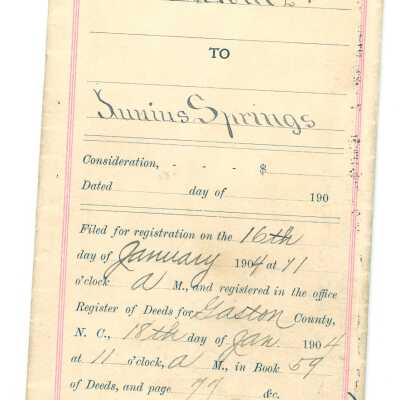 TO
Junius Springs
Consideration, - - - $
Dated day of 190
Filed for registration on the 16th
day of January 1904 at 11
o'clock a M., and registered in the office
Register of Deeds for Gaston County,
N. C., 18th day of Jan 1904
at 11 o'clock, a M., in Book 59
of Deeds, and page 77 &c.